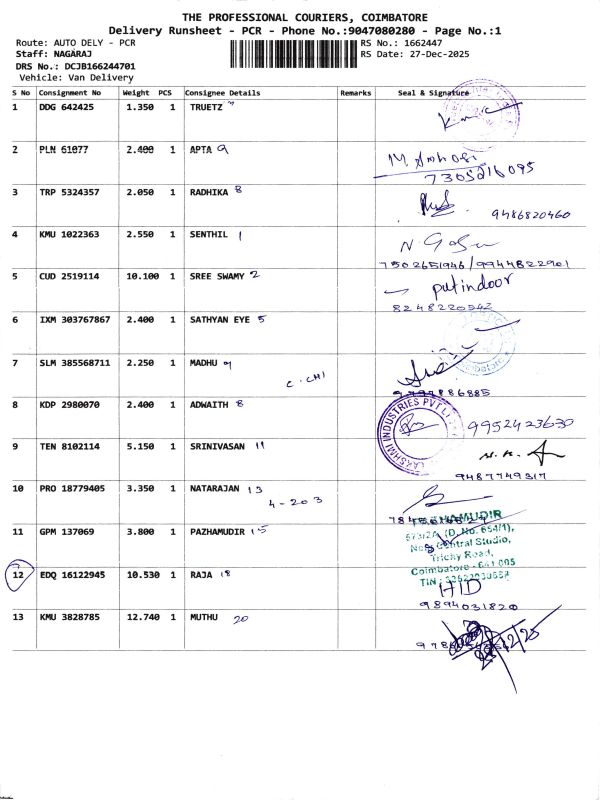 THE PROFESSIONAL COURIERS, COIMBATORE
Delivery Runsheet - PCR - Phone No.:9047080280 - Page No.:1
Route: AUTO DELY - PCR RS No.: 1662447
Staff: NAGARAJ RS Date: 27-Dec-2025
DRS No.: DCJB166244701
Vehicle: Van Delivery
S No Consignment No Weight PCS Consignee Details Remarks Seal & Signature
1 DDG 642425 1.350 1 TRUETZ
2 PLN 61077 2.400 1 APTA 9
7305216095
3 TRP 5324357 2.050 1 RADHIKA 8
9486820460
4 KMU 1022363 2.550 1 SENTHIL 1
7502651946/9944822901
5 CUD 2519114 10.100 1 SREE SWAMY 2
putindoor
8248220542
6 IXM 303767867 2.400 1 SATHYAN EYE 5
7 SLM 385568711 2.250 1 MADHU 9
C.CHI
8 KDP 2980070 2.400 1 ADWAITH 8
LAKSHMI INDUSTRIES PVT
9952423630
9 TEN 8102114 5.150 1 SRINIVASAN 11
9487749317
10 PRO 18779405 3.350 1 NATARAJAN 13
4-203
11 GPM 137069 3.800 1 PAZHAMUDIR 15
573/2A, (D.No. 654/1),
Central Studio,
Trichy Road,
Coimbatore - 641 005
TIN :
12 EDQ 16122945 10.530 1 RAJA 18
HID
9894031820
13 KMU 3828785 12.740 1 MUTHU 20